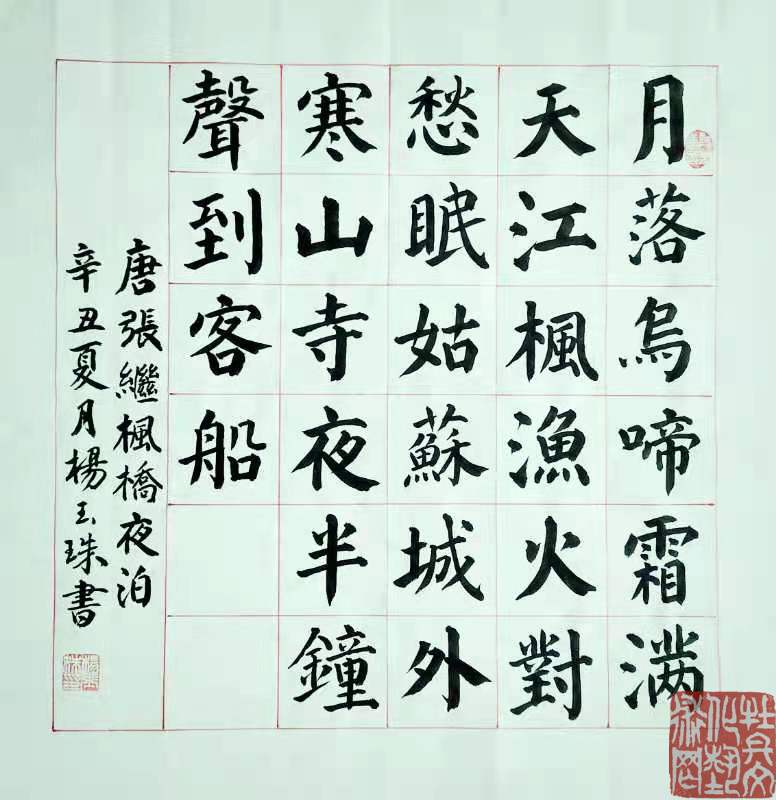 月落烏啼霜滿
天江楓漁火對
愁眠姑蘇城外
寒山寺夜半鐘
聲到客船
唐張繼楓橋夜泊
辛丑夏月楊玉珠書